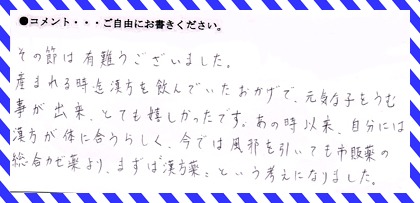 ●コメント・・・ご自由にお書きください。
その節は有難うございました。
産まれる時迄漢方を飲んでいたおかげで、元気な子をうむ
事が出来、とても嬉しかったです。あの時以来、自分には
漢方が体に合うらしく、今では風邪を引いても市販薬の
総合カゼ薬より、まずは"漢方薬"という考えになりました。